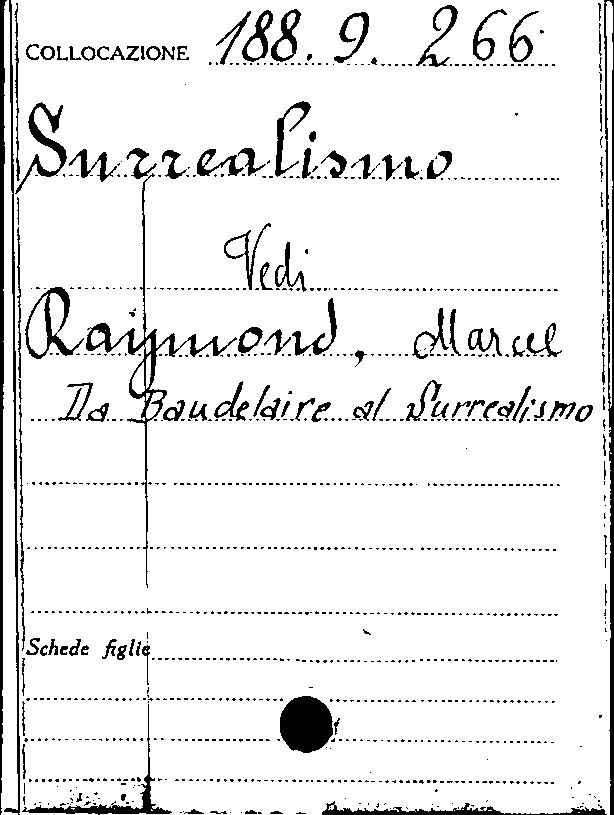 COLLOCAZIONE 188. 9. 266
Surrealismo
Vedi
Raymond, Marcel
Da Baudelaire al Surrealismo
Schede figlie